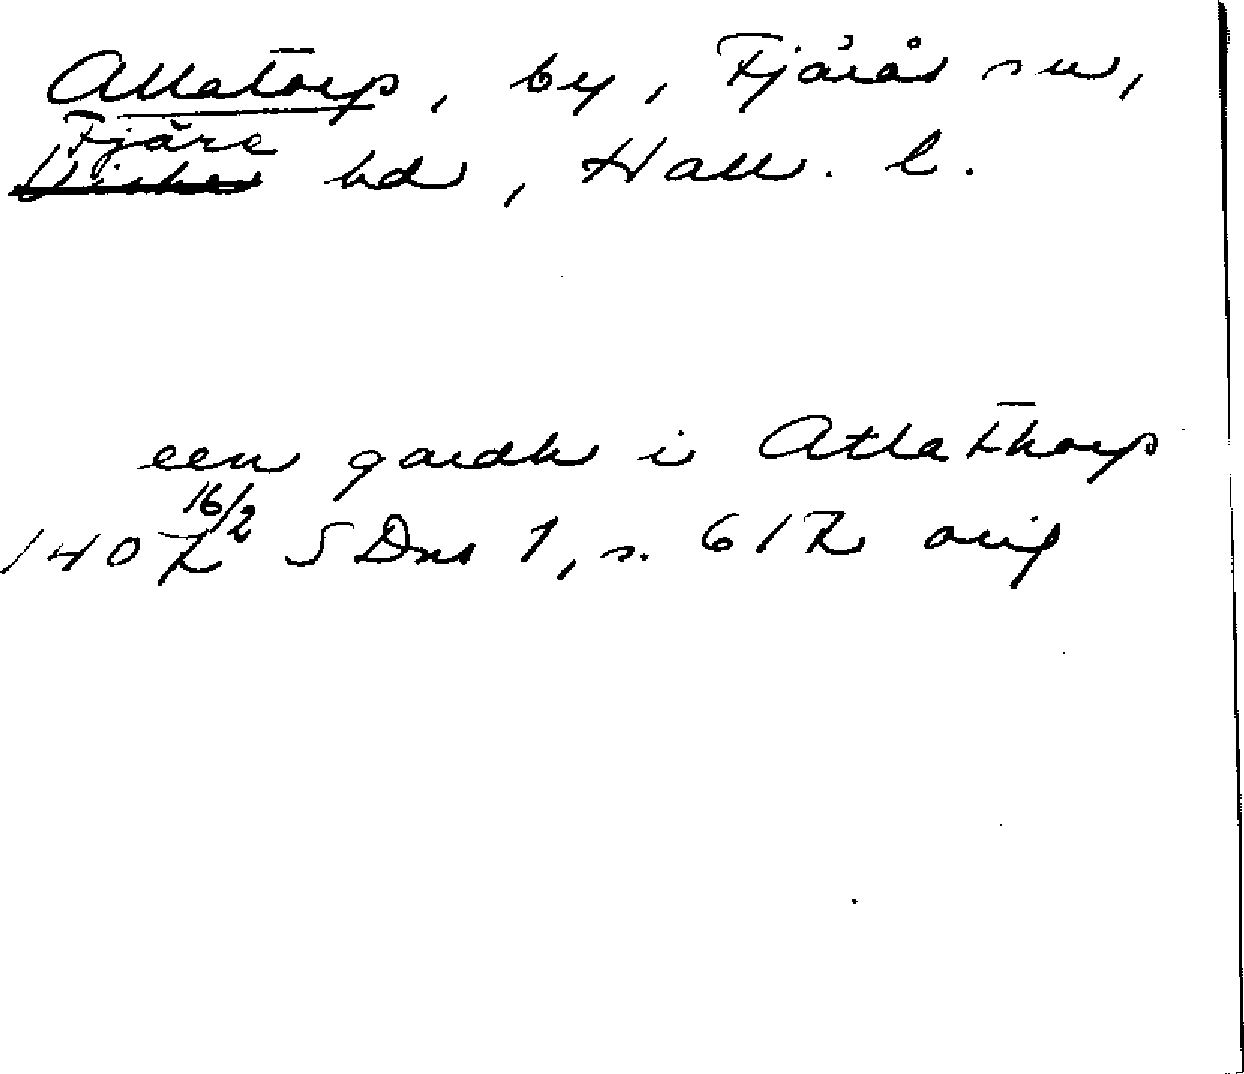 Allatorp, by, Fjärås sn,
Fjäre
hd, Hall. l.
een gardh i Atlathorp
16/2
1407 SDns 1, s. 617 orig